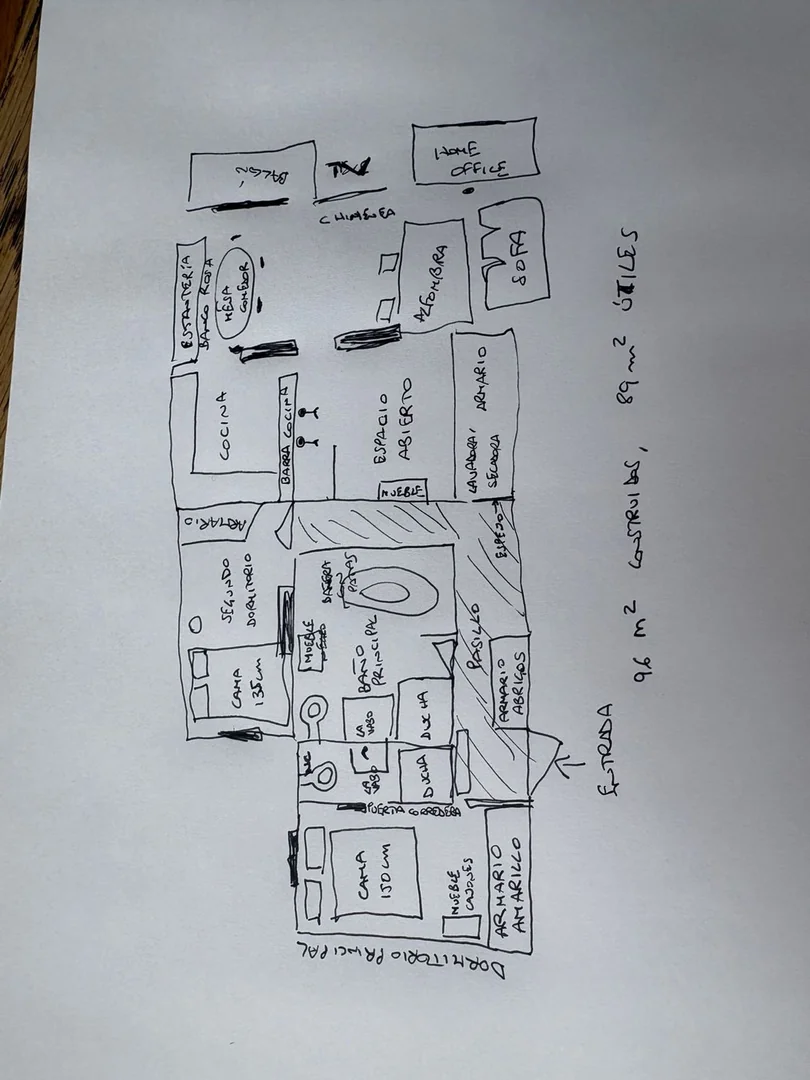 BALCÓN
HOME
OFFICE
CHIMENEA
ESTANTERÍA
BANCO ROSA
MESA
COMEDOR
ALFOMBRA
SOFA
COCINA
BARRA COCINA
ESPACIO
ABIERTO
LAVADORA/
SECADORA
ARMARIO
ARMARIO
ESPEJO
SEGUNDO
DORMITORIO
CAMA
135cm
BAÑERA
CON
PATAS
MUEBLE
BAÑO
PRINCIPAL
LAVABO
DUCHA
PASILLO
ARMARIO
ABRIGOS
ENTRADA
WC
LAVABO
DUCHA
PUERTA CORREDERA
CAMA
150cm
MUEBLE
CAJONES
ARMARIO
AMARILLO
DORMITORIO PRINCIPAL
96 m² CONSTRUIDOS, 89 m² ÚTILES